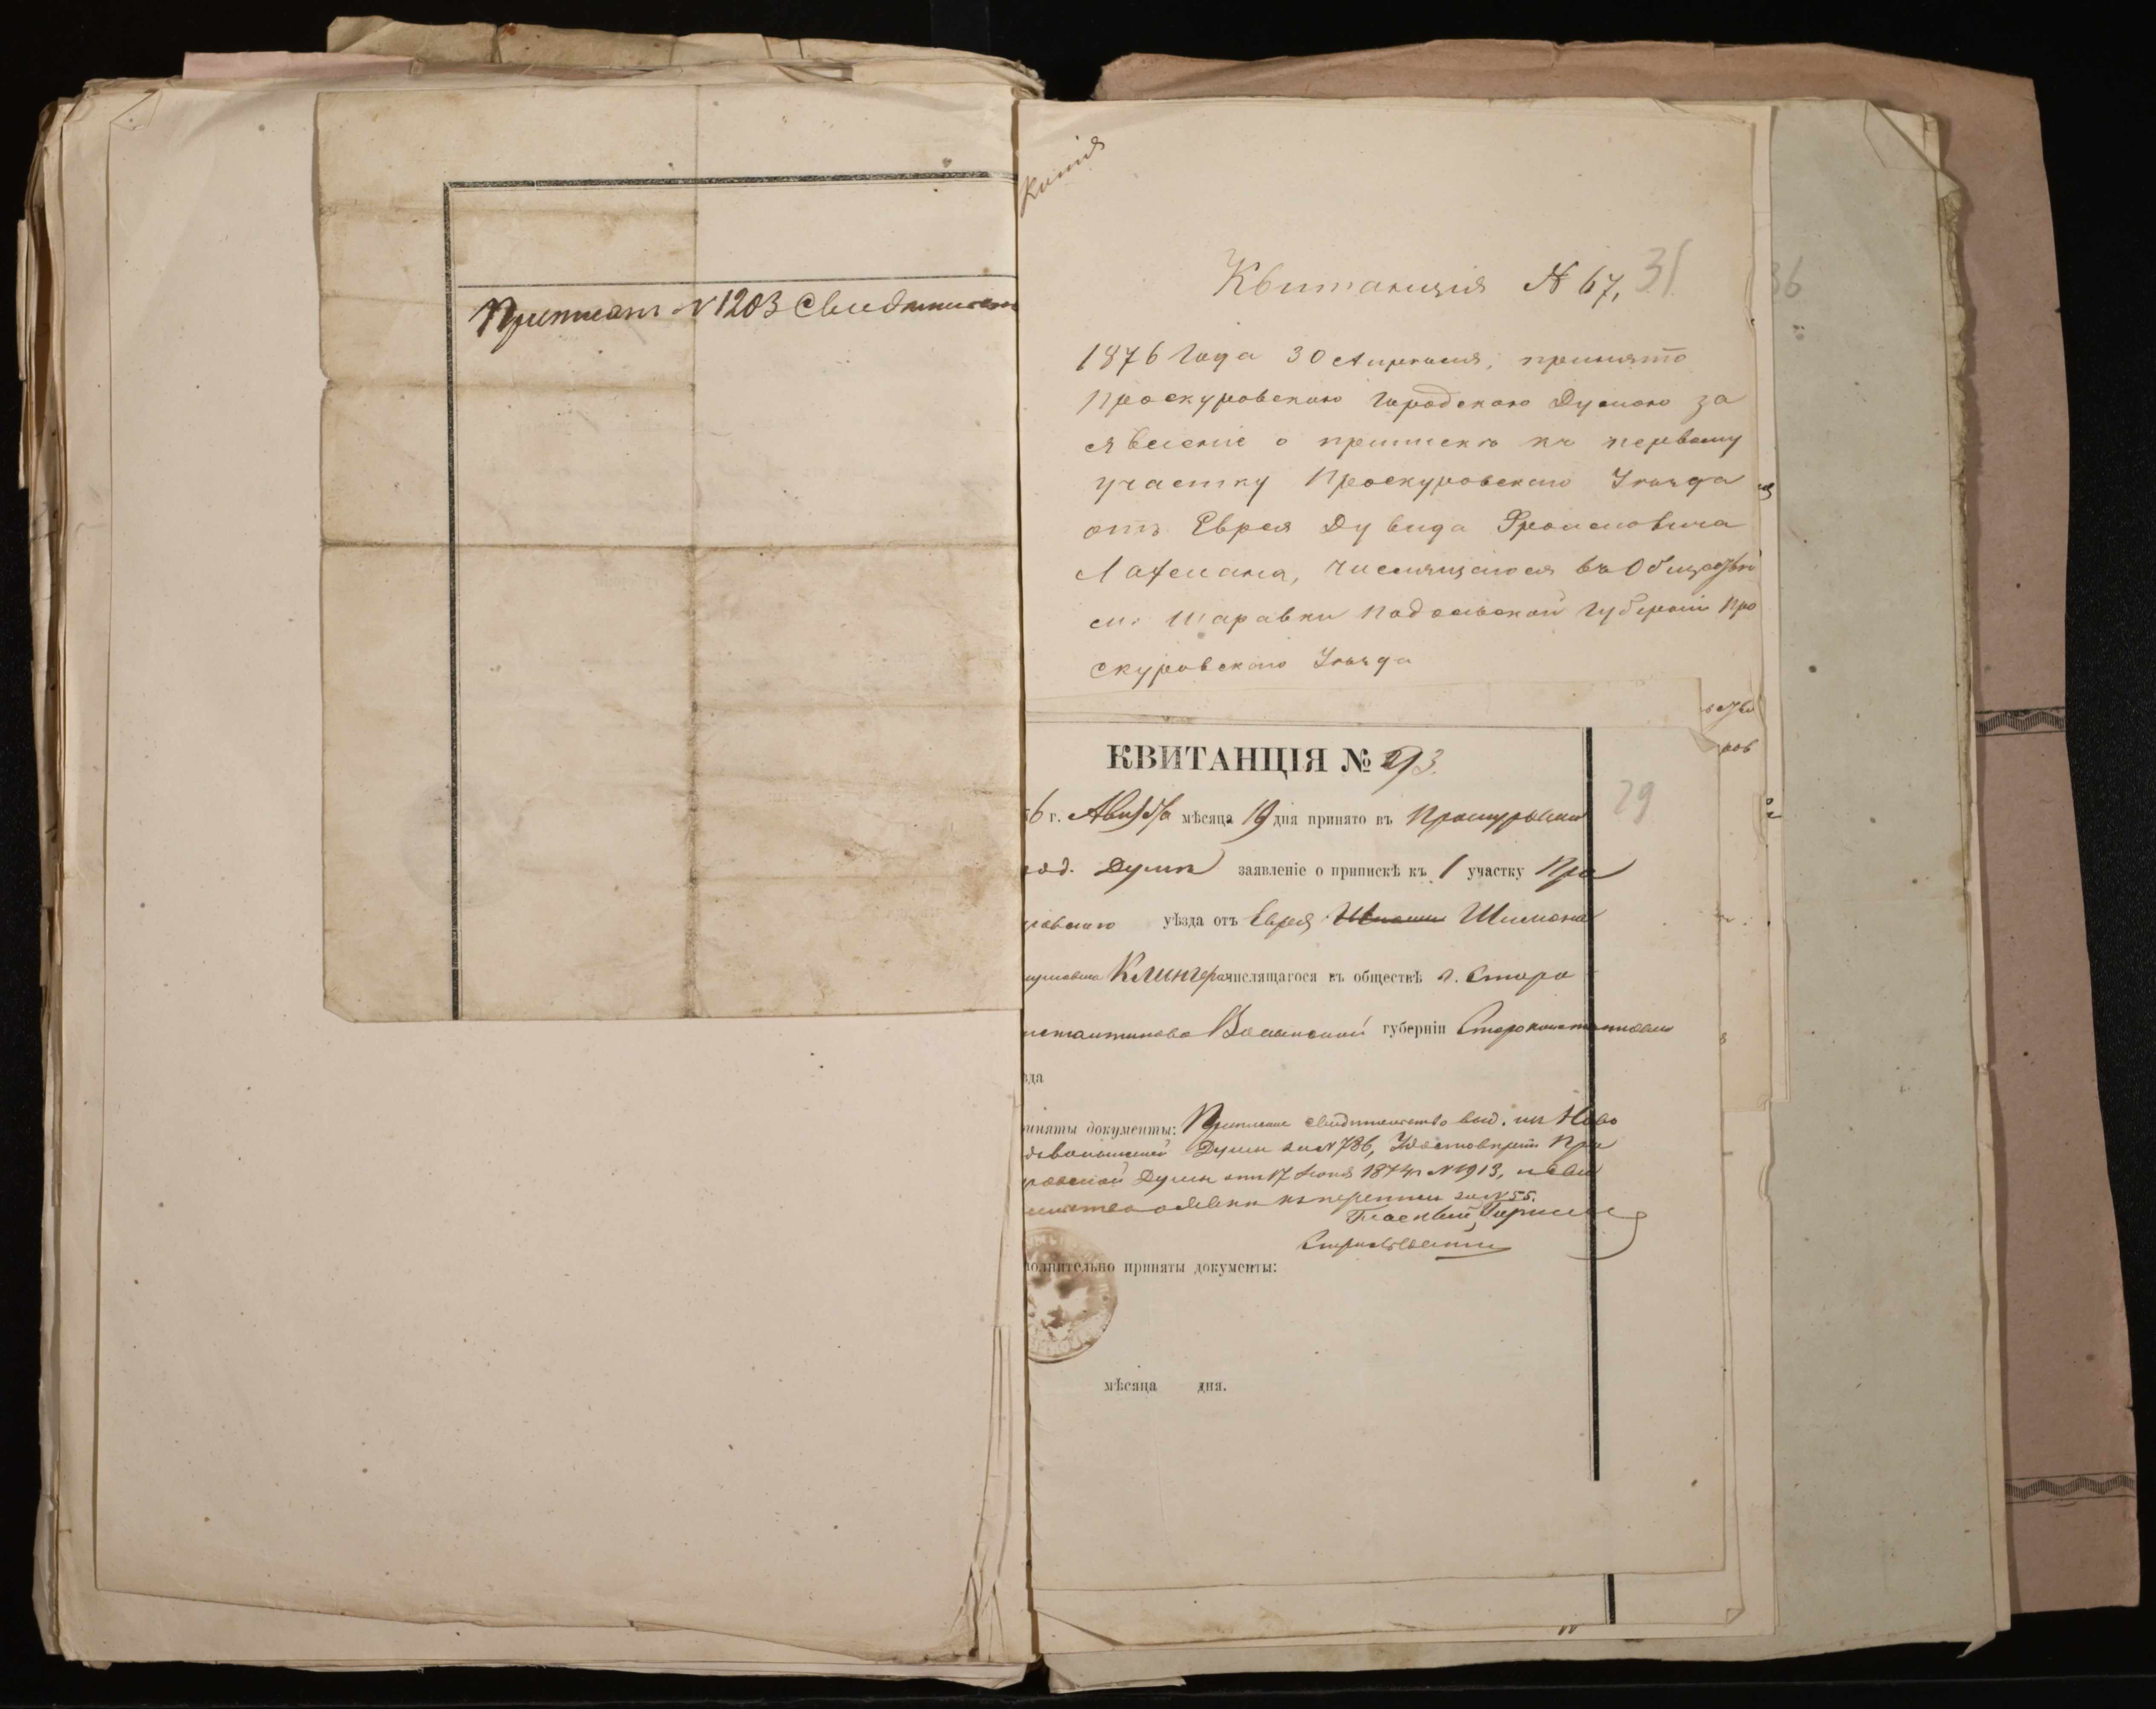 Приписан № 1203 Свидѣтель
Копія
Квитанція № 67,
31
36
1876 Года 30 Апрѣля, принято
Проскуровскою Городскою Думою за
явленіе о припискѣ къ первому
участку Проскуровскаго Уѣзда
отъ Еврея Дувида
числящагося въ Обществѣ
м. Шаравки Подольской Губерніи Про
скуровскаго Уѣзда
КВИТАНЦІЯ № 93.
29
6 г. Августа мѣсяца 19 дня принято въ Проскуровской
род. Думѣ заявленіе о припискѣ къ 1 участку Про
уѣзда отъ Еврея Шимона
Клингера числящагося въ обществѣ г. Старо
нстантинова Волынской губерніи Староконстантиновск
зда
иняты документы: Приписное свидѣтельство выд. изъ Ново
Думы за № 786, Про
ровской Думы отъ 17 Іюня 1874 г № 1913, и сви
за № 55.
Гласный
полнительно приняты документы:
мѣсяца дня.